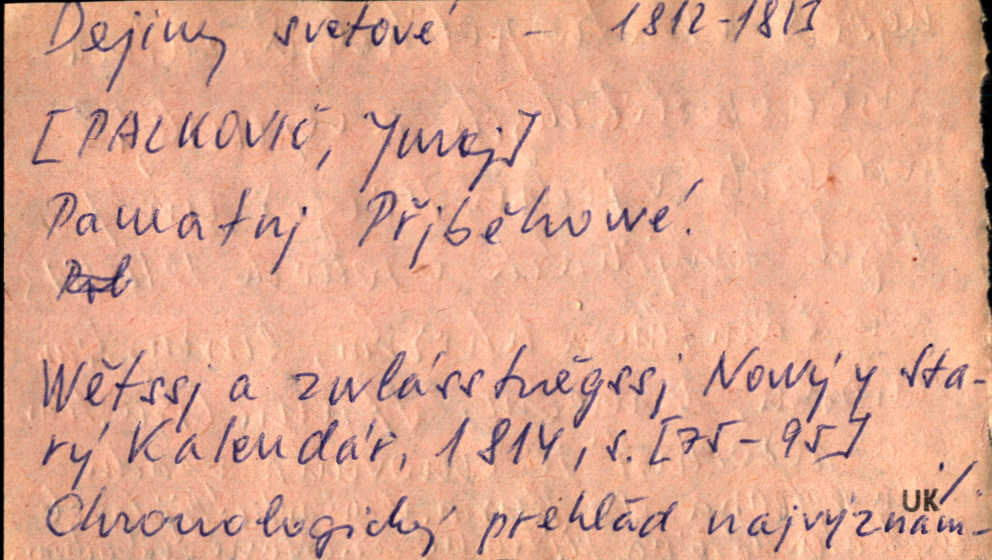 Dejiny svetové - 1812-1813
[PALKOVIČ, Juraj]
Pamatnj Přjběhowé.
Wětssj a zwlásstněgssj Nowý y Sta-
rý Kalendár, 1814, s. [75-95]
Chronologický prehlad najvýznám-
UK